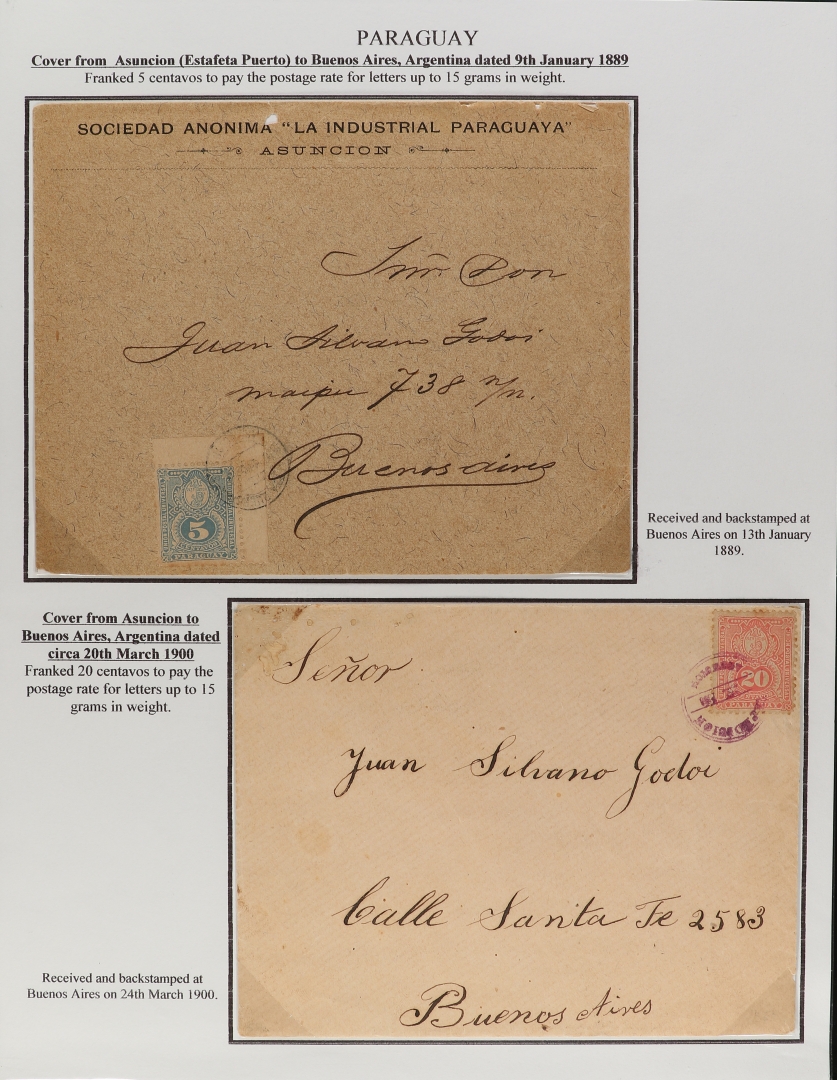 PARAGUAY
Cover from Asuncion (Estafeta Puerto) to Buenos Aires, Argentina dated 9th January 1889
Franked 5 centavos to pay the postage rate for letters up to 15 grams in weight.
SOCIEDAD ANONIMA "LA INDUSTRIAL PARAGUAYA"
ASUNCION
Don
Juan Silvano Godoi
maipu 738
Buenos aires
5
CENTAVOS
PARAGUAY
Received and backstamped at
Buenos Aires on 13th January
1889.
Cover from Asuncion to
Buenos Aires, Argentina dated
circa 20th March 1900
Franked 20 centavos to pay the
postage rate for letters up to 15
grams in weight.
20
PARAGUAY
Señor
Juan Silvano Godoi
Calle Santa Fe 2583
Buenos Aires
Received and backstamped at
Buenos Aires on 24th March 1900.